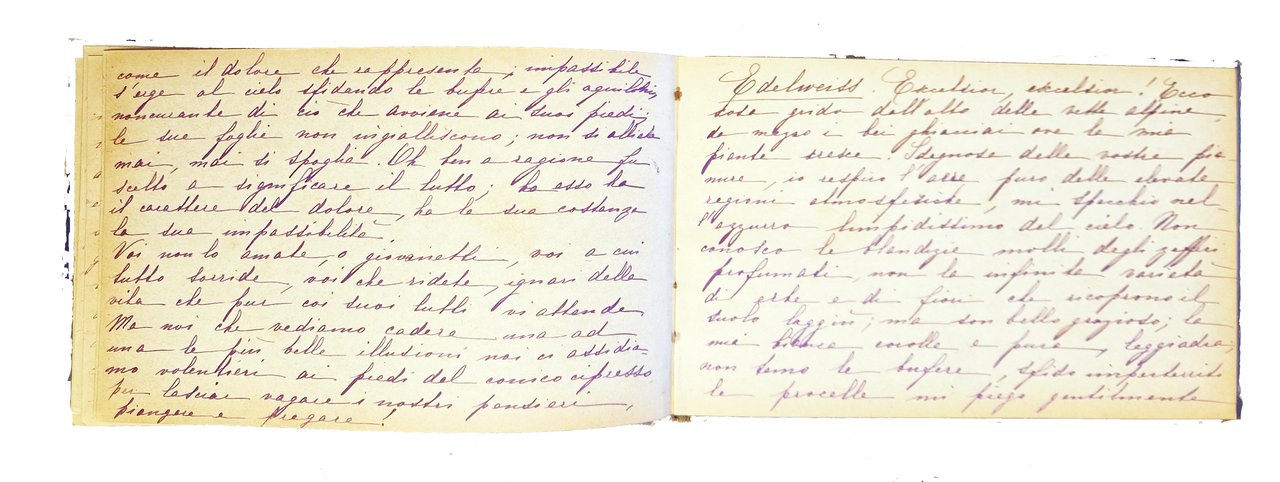 come il dolore che rappresenta; impassibile
s'erge al cielo sfidando le bufere e gli aquiloni,
noncurante di ciò che avviene ai suoi piedi;
le sue foglie non ingialliscono; non si
mai, mai si spoglia. Oh ben a ragione fu
scelto a significare il lutto; ha esso ha
il carattere del dolore, ha la sua costanza
la sua impassibilità.
Voi non lo amate, o giovinetti, voi a cui
tutto sorride, voi che ridete, ignari della
vita che pur coi suoi lutti vi attende
Ma noi che vediamo cadere una ad
una le più belle illusioni noi ci assidia=
mo volentieri ai piedi del conico cipresso
per lasciar vagare i nostri pensieri,
piangere e pregare!
Edelweiss. Excelsior, excelsior! Ecco
grido dall'alto delle vette alpine,
da mezzo i bei ghiacciai ove la mia
pianta cresce. Sdegnosa delle vostre pia
nure, io respiro l'aere puro delle elevate
regioni atmosferiche, mi specchio nel-
l'azzurro limpidissimo del cielo. Non
conosco le blandizie molli degli zeffiri
profumati, non la infinita varietà
di erbe e di fiori che ricoprono il
suolo laggiù; ma son bello grazioso; la
mia bianca corolla è pura, leggiadra;
non temo le bufere, sfido imperterrito
le procelle mi piego gentilmente